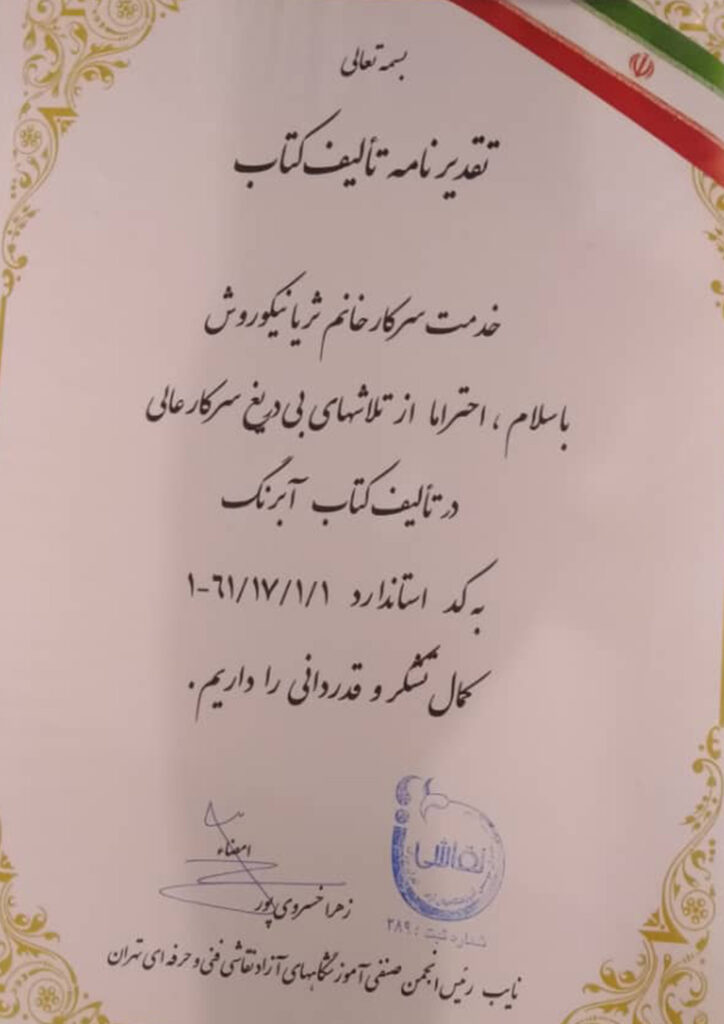 بسمه تعالی
تقدیر نامه تألیف کتاب
خدمت سرکار خانم ثریا نیکوروش
با سلام ، احتراما از تلاشهای بی دریغ سرکار عالی
در تألیف کتاب آبرنگ
به کد استاندارد ۱-۶۱/۱۷/۱/۱
کمال تشکر و قدردانی را داریم .
نقاشی
شماره ثبت : ۳۸۹
امضاء
زهرا خسروی پور
نایب رئیس انجمن صنفی آموزشگاههای آزاد نقاشی فنی و حرفه ای تهران